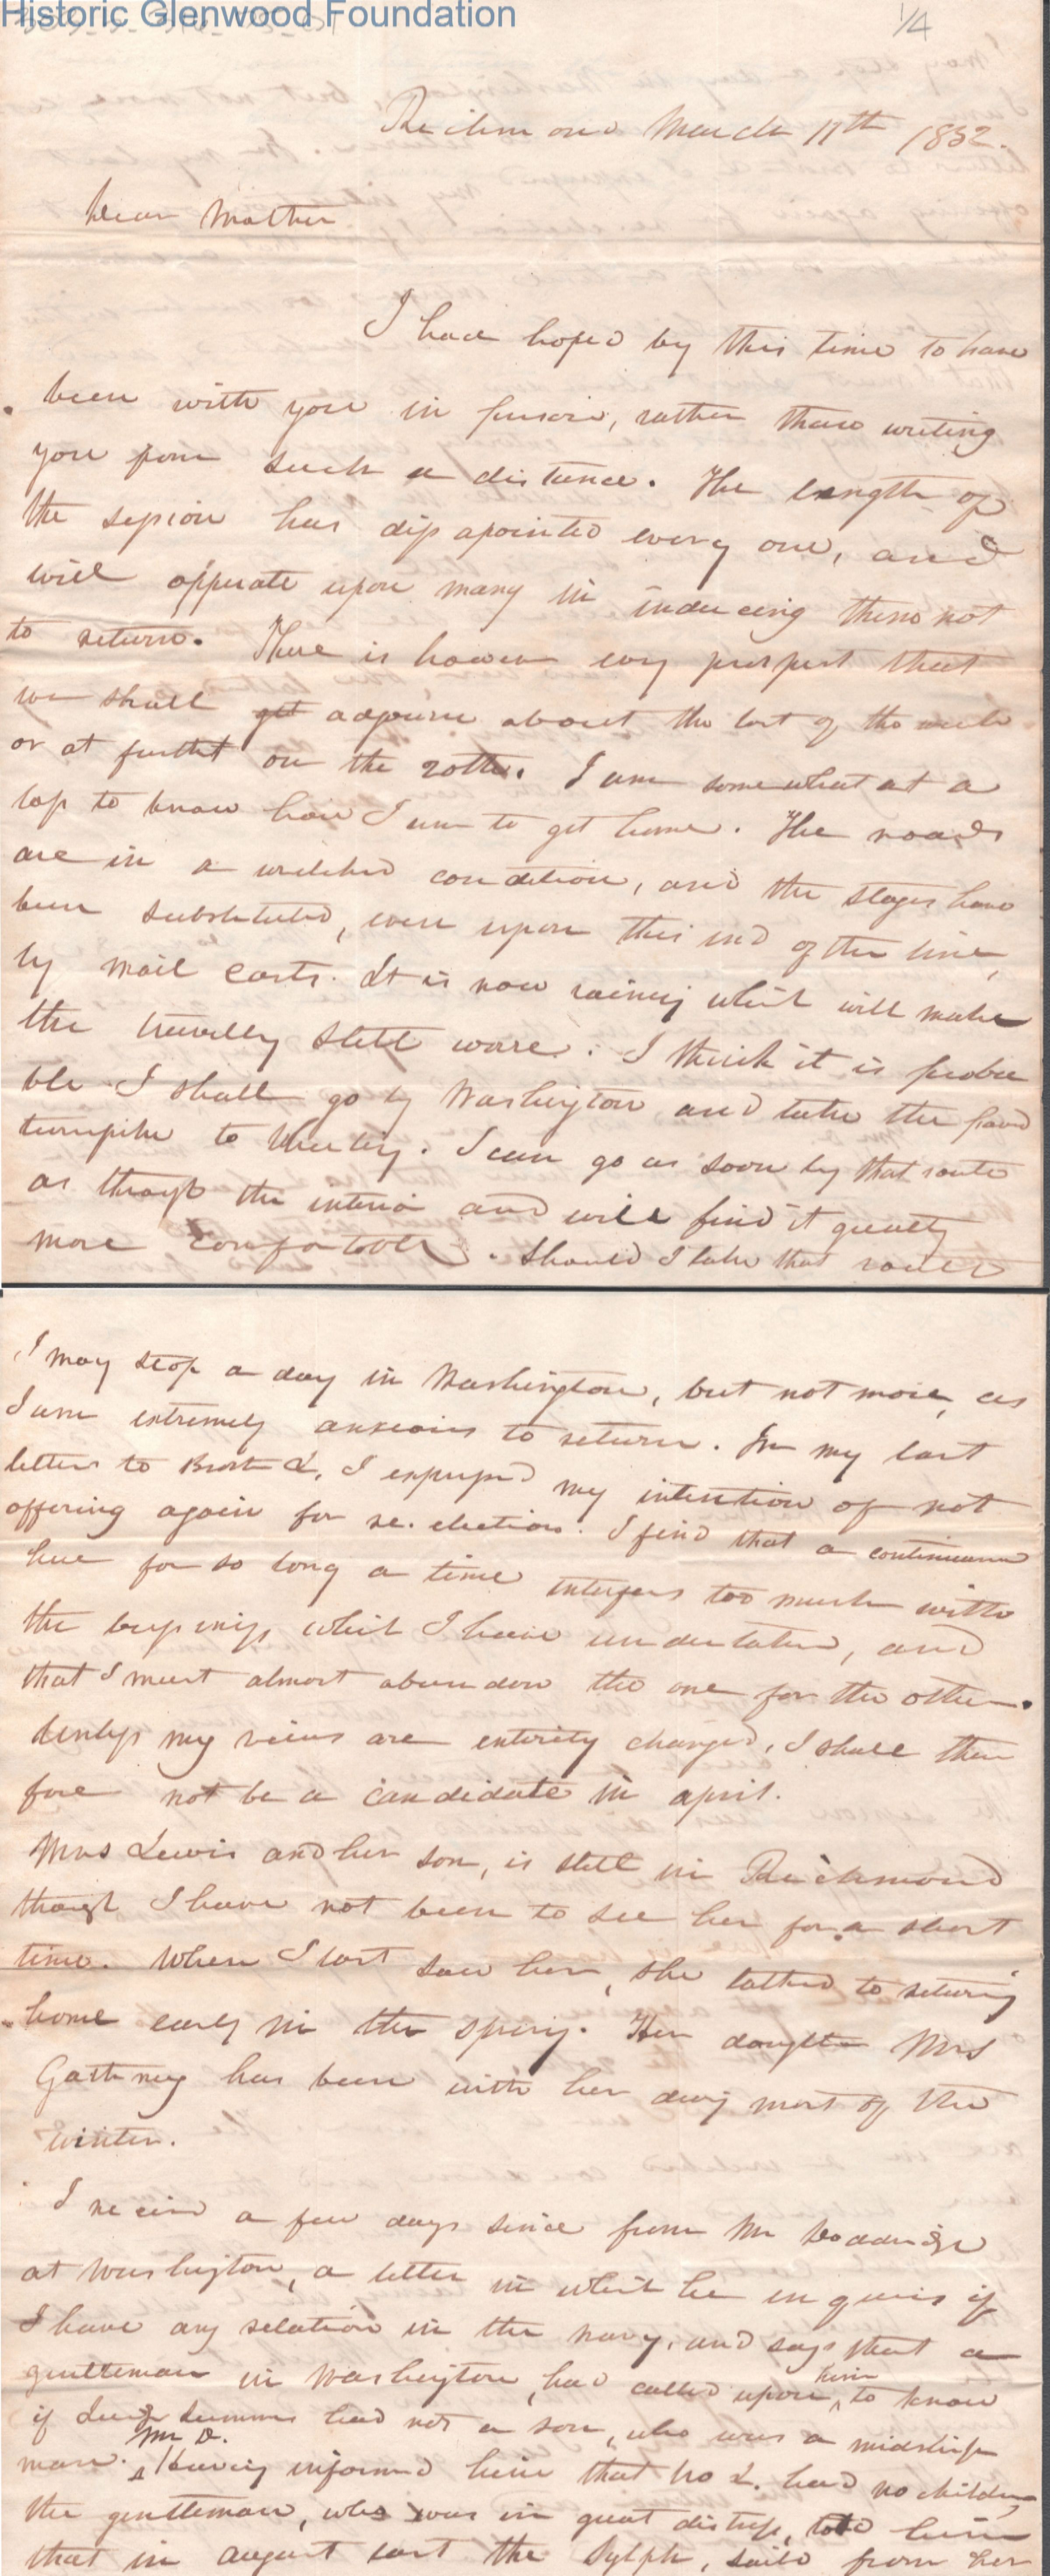 Historic Glenwood Foundation
1/4
Richmond March 11th 1832.
Dear Mother
I had hoped by this time to have
been with you in person, rather than writing
you from such a distance. The length of
the session has disapointed every one, and
will opperate upon many in inducing them not
to return. There is however evry prospect that
we shall get adjourn about the last of the week
or at furthest on the 20th. I am somewhat at a
loss to know how I am to get home. The roads
are in a wretched condition, and the stages have
been substituted, even upon this end of the line,
by mail carts. It is now raining which will make
the travelly still worse. I think it is proba
ble I shall go by Washington and take the
turnpike to Wheeling. I can go as soon by that route
as through the interior and will find it greatly
more comfortable. Should I take that route
I may stop a day in Washington, but not more, as
I am extremely anxious to return. In my last
letter to Broth L, I expressed my intention of not
offering again for re.election. I find that a continuance
here for so long a time interfers too much with
the business which I have undertaken, and
that I must almost abandon the one for the other.
Unless my views are entirely changed, I shall there
fore not be a candidate in april.
Mrs Lewis and her son, is still in Richmond
though I have not been to see her for a short
time. When I last saw her, she talked to returning
home early in the spring. Her daughter Mrs
Gathney has been with her during most of the
winter.
I receivd a few days since from Mr Doddridge
at Washington, a letter in which he inquires if
I have any relation in the navy, and says that a
gentleman in Washington, had called upon him, to know
if Lewis Summers had not a son, who was a midship
man. Mr D. Having informed him that bro L. had no children,
the gentleman, who was in great distress, told him
that in august last the Sylph, saild from her